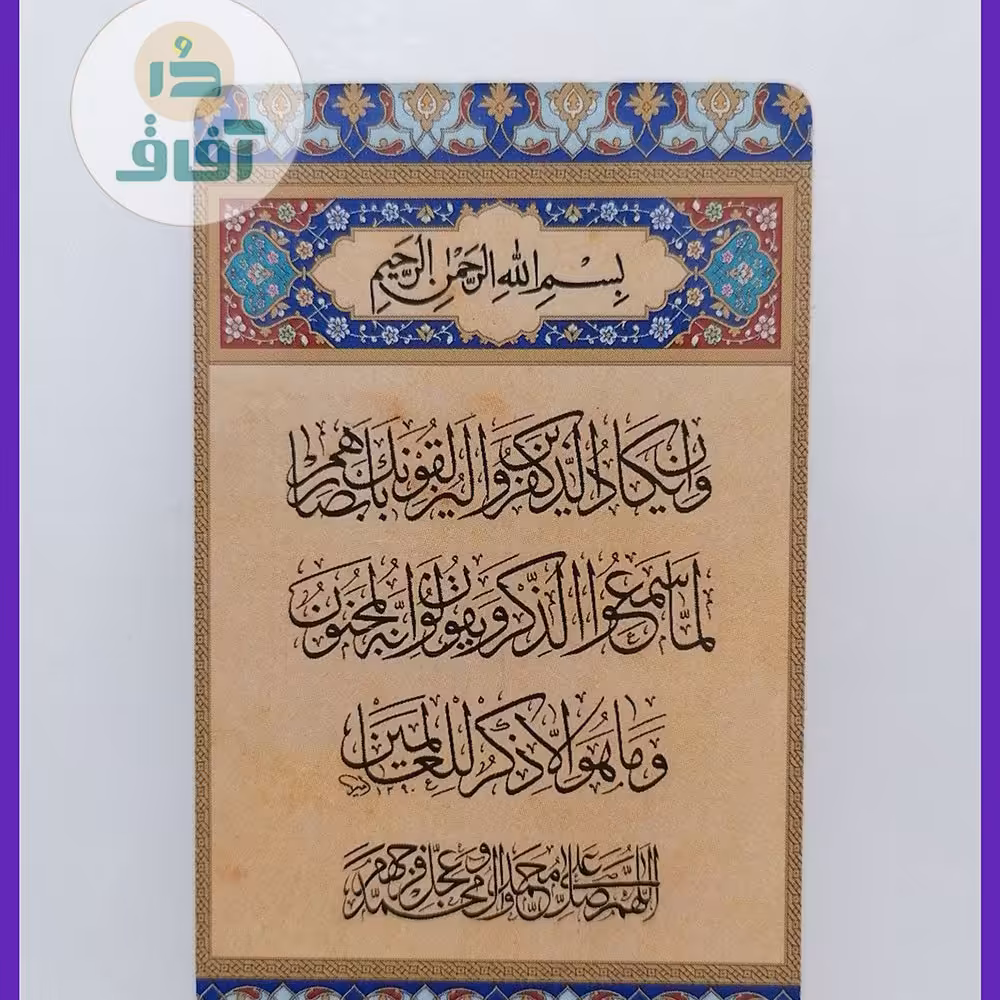 دُر
آفاق
بِسْمِ اللهِ الرَّحْمٰنِ الرَّحِیمِ
وَاِن یَکادُ الَّذینَ کَفَرُوا لَیُزلِقُونَکَ بِاَبصارِهِم
لَمّا سَمِعُوا الذِّکرَ وَ یَقُولُونَ اِنَّهُ لَمَجنُونٌ
وَ ما هُوَ اِلّا ذِکرٌ لِلعالَمینَ
۱۳۹۰
اللّهُمَّ صَلِّ عَلی مُحَمَّدٍ وَ آلِ مُحَمَّدٍ وَ عَجِّل فَرَجَهُم